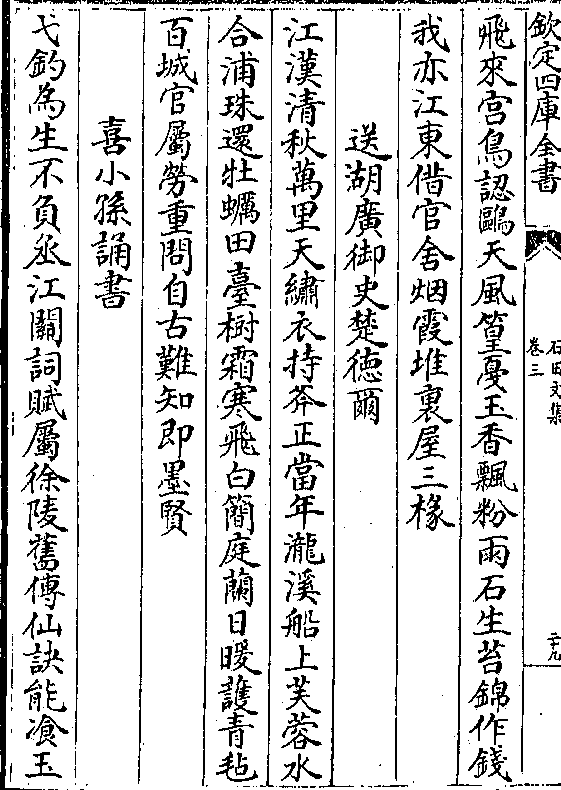 欽定四庫全書
石田文集
卷三
二十九
飛來宫鳥認鷗天風篁戞玉香飄粉雨石生苔錦作錢
我亦江東借官舍烟霞堆裏屋三椽
送湖廣御史楚徳爾
江漢清秋萬里天繡衣持斧正當年瀧溪船上芙蓉水
合浦珠還牡蠣田臺樹霜寒飛白簡庭蘭日暖護青氊
百城官屬勞重問自古難知即墨賢
喜小孫誦書
弋釣為生不負丞江關詞賦屬徐陵舊傳仙訣能飡玉